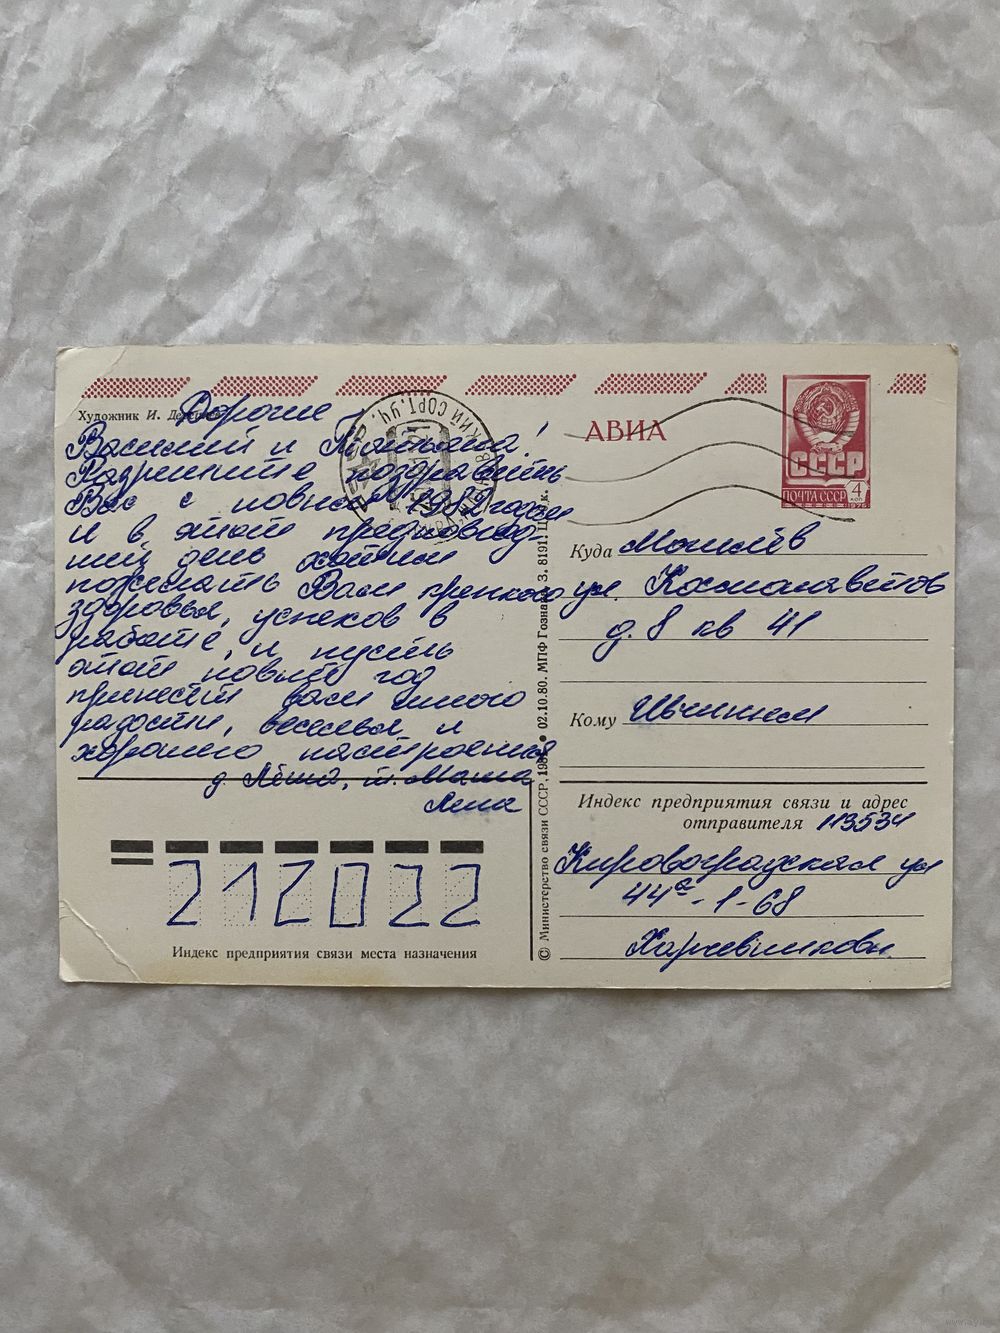 Художник И.
Дорогие
Василий и Татьяна!
Разрешите поздравить
Вас с новым 1982 годом
и в этот предновогод
ний день хотим
пожелать Вам крепкого
здоровья, успехов в
работе, и пусть
этот новый год
принесёт вам много
радости, веселья и
хорошего настроения
д. Лёша, т. Маша
Лена
212022
Индекс предприятия связи места назначения
© Министерство связи СССР, 1980 ● 02.10.80. МПФ Гознака. З. 8191. Ц. к.
АВИА
СССР
ПОЧТА СССР 4 коп
1976
Куда Могилёв
ул. Космонавтов
д. 8 кв 41
Кому
Индекс предприятия связи и адрес
отправителя 113534
Кировоградская ул
44а-1-68